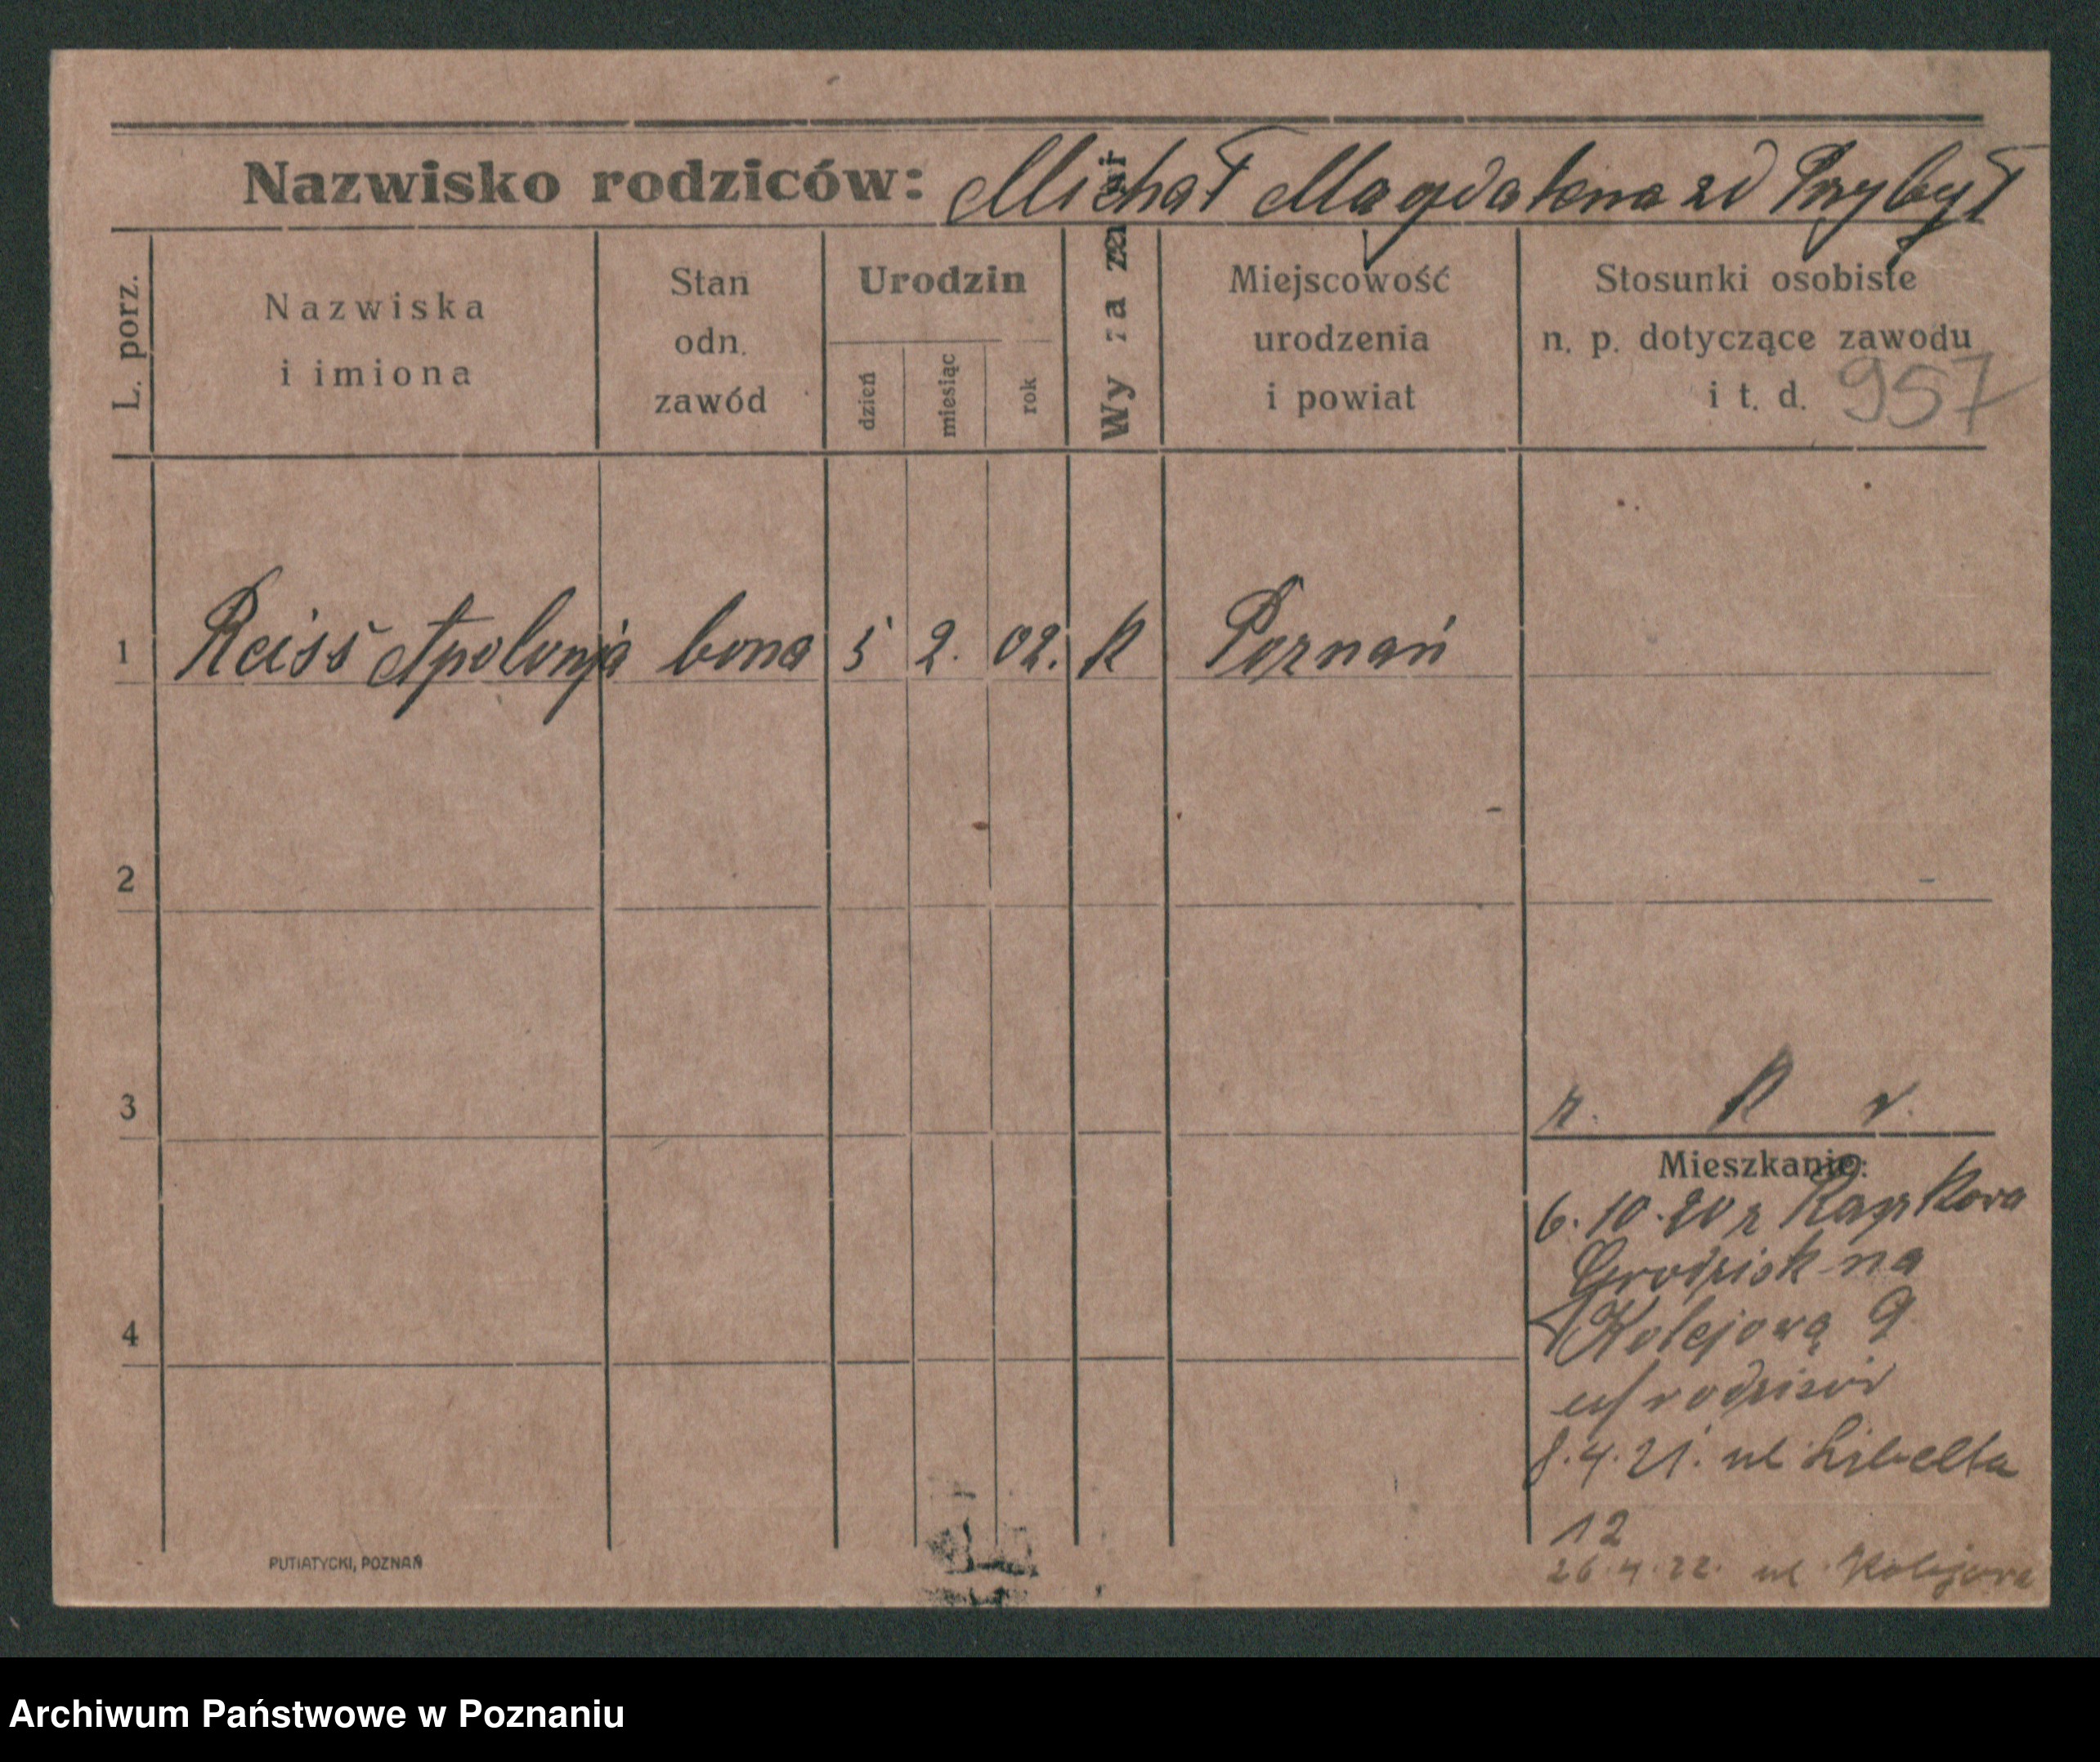 Nazwisko rodziców: Michał Magdalena zd Przybył
L. porz.
Nazwiska
i imiona
Stan
odn.
zawód
Urodzin
dzień
miesiąc
rok
Wy za
Miejscowość
urodzenia
i powiat
Stosunki osobiste
n. p. dotyczące zawodu
i t. d. 957
1 Reiss Apolonja bona 5 2. 02. K Poznań
2
3
r. K v.
Mieszkanie:
6.10.20 z
Grodzisk na
Kolejową 9
8.4.21. ul Libelta
12
26.4.22. ul Kolejowa
4
PUTIATYCKI, POZNAŃ
Archiwum Państwowe w Poznaniu